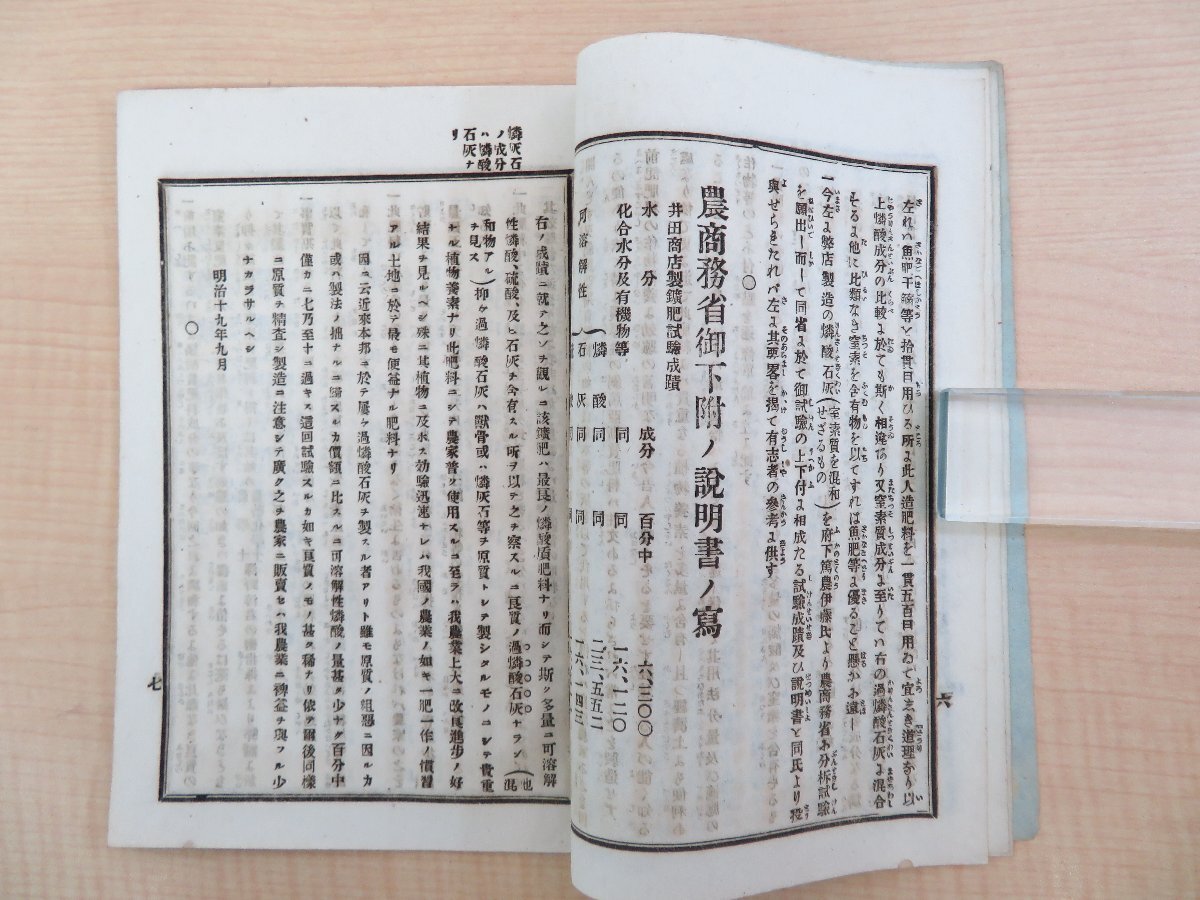 左れハ魚肥干鰯等を拾貫目用ひる所は此人造肥料を一貫五百目用ゐて宜しき道理なり以
上燐酸成分の比較に於ても斯く相違あり又窒素質成分に至りてハ右の過燐酸石灰に混合
そるに他に比類なき窒素を含有物を以てすれば魚肥等に優ること懸かに遠し
一今左に弊店製造の燐酸石灰(窒素質を混和せざるもの)を府下篤農伊藤氏より農商務省に分析試験
を願出しに而して同省に於て御試験の上下付に相成たる試験成蹟及び說明書を同氏より投
與せられたれバ左に其要畧を揭て有志者の參考に供す
〇
農商務省御下附ノ說明書ノ寫
井田商店製鑛肥試驗成蹟
水分 成分 百分中 六、三〇〇
化合水分及有機物等 同 同 一六、一二〇
可溶解性 燐酸 同 同 二三、五五二
石灰 同 同 一六、一四三
六
燐灰石
ノ成分
ハ燐酸
石灰ナ
リ
右ノ成蹟ニ就テ之ヲ觀レハ該鑛肥ハ最良ノ燐酸質肥料ナリ而シテ斯ク多量ニ可溶解
性燐酸、硫酸、及ヒ石灰ヲ含有スル所ヲ以テ之ヲ察スルニ良質ノ過燐酸石灰ナラン(也混
和物アル)ヲ見ス 抑々過燐酸石灰ハ獸骨或ハ燐灰石等ヲ原質トシテ製シタルモノニシテ貴重
ナル植物養素ナリ此肥料ニシテ農家普ク使用スルニ至ラハ我農業上大ニ改良進步ノ好
結果ヲ見ルヘシ殊ニ其植物ニ及ホス効驗迅速ナレハ我國ノ農業ノ如キ一肥一作ノ慣習
アル土地ニ於テ最モ便益ナル肥料ナリ
因ニ云近來本邦ニ於テ屢々過燐酸石灰ヲ製スル者アリト雖モ原質ノ粗惡ニ因ルカ
或ハ製法ノ拙ナルニ歸スルカ價額ニ比スルニ可溶解性燐酸ノ量甚タ少ナク百分中
僅カニ七乃至十ニ過キス這回試驗スルカ如キ良質ノモノ甚タ稀ナリ依テ爾後同樣
ニ原質ヲ精査シ製造ニ注意シテ廣ク之ヲ農家ニ販賣セハ我農業ニ裨益ヲ與フル少
ナカラサルヘシ
明治十九年九月
〇
七